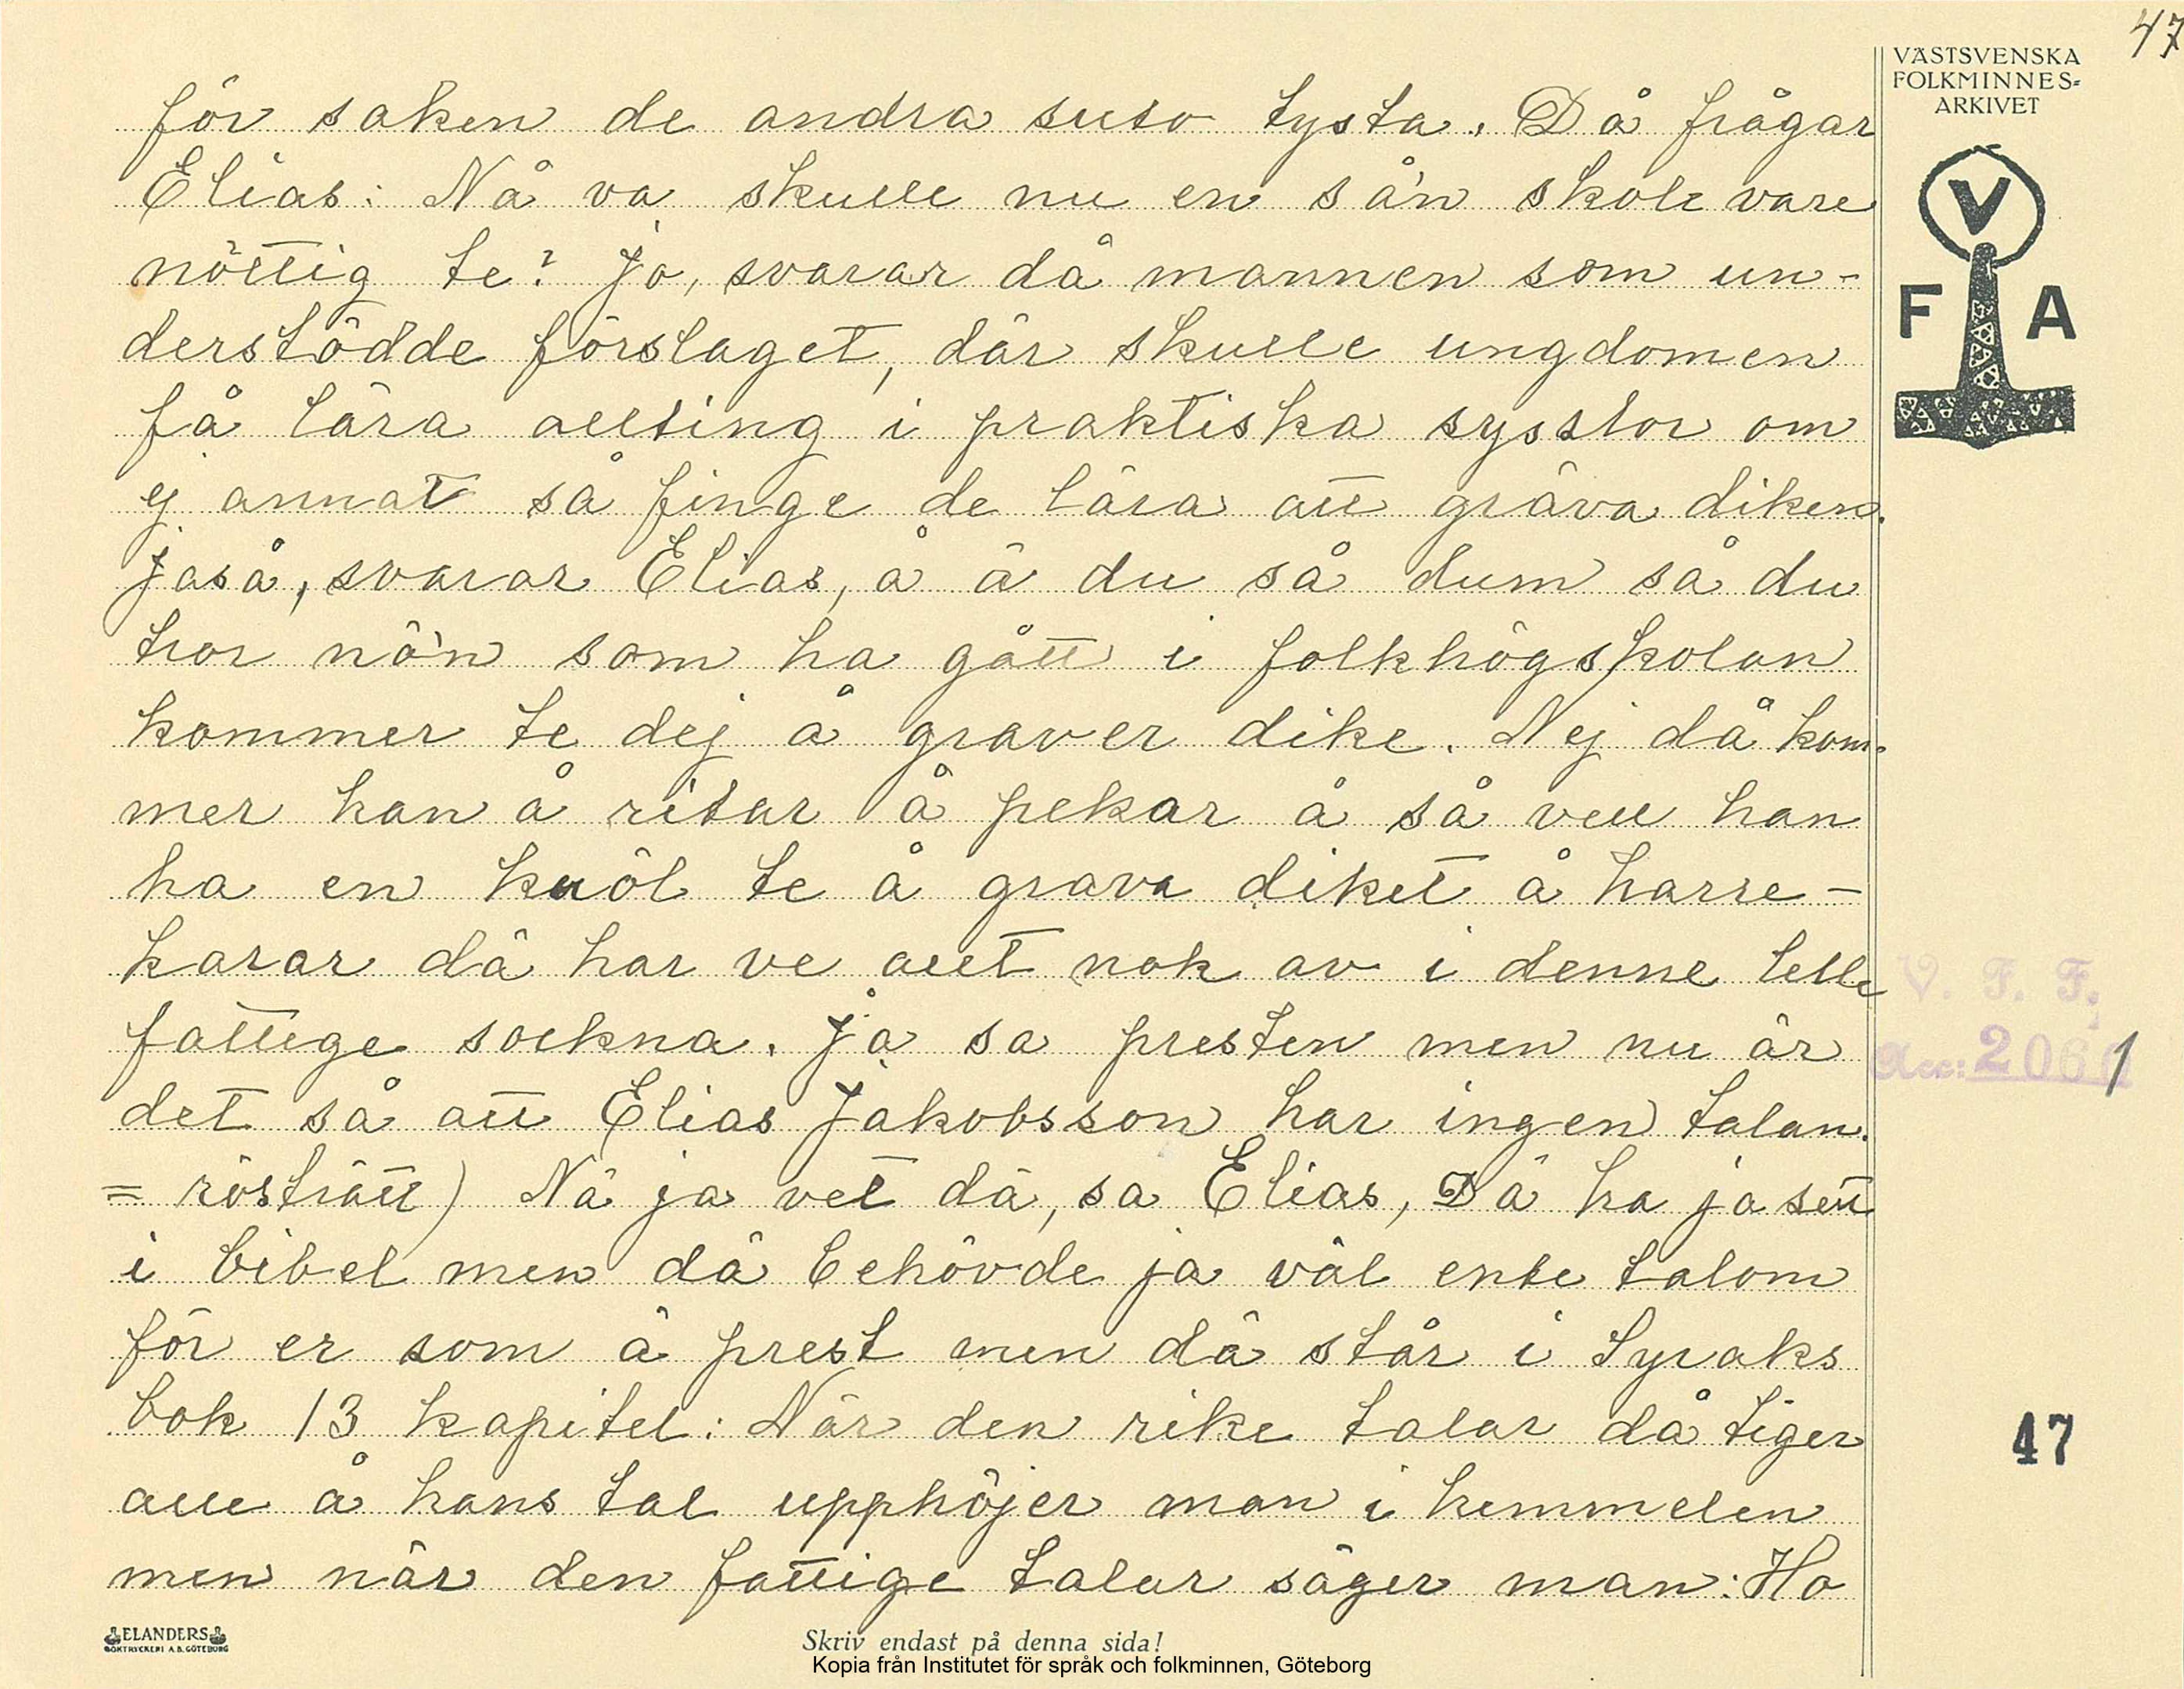 47
VÄSTSVENSKA
FOLKMINNES=
ARKIVET
V
F A
för saken de andra suto tysta. Då frågar
Elias: Nå va skulle nu en så'n skole vare
nöttig te? Jo, svarar då mannen som un-
derstödde förslaget, där skulle ungdomen
få lära allting i praktiska sysslor om
ej annat så finge de lära att gräva diken.
Jaså, svarar Elias, å ä du så dum så du
tror nö'n som ha gått i folkhögskolan
kommer te dej å graver dike. Nej då kom-
mer han å ritar å pekar å så vell han
ha en knöl te å grava diket å harre-
karar dä har ve allt nok av i denne lelle
fattige sockna. Ja sa presten men nu är
det så att Elias Jakobsson har ingen talan.
= rösträtt) Nä ja vet dä, sa Elias, Dä ha ja sett
i bibel men dä behövde ja väl ente talom
för er som ä prest men dä står i Syraks
bok 13 kapitel: När den rike talar då tiger
alle å hans tal upphöjer man i hemmelen
men när den fattige talar säger man: Ho
V. F. F.
Acc: 2061
47
ELANDERS
BOKTRYCKERI A.B. GÖTEBORG
Skriv endast på denna sida!
Kopia från Institutet för språk och folkminnen, Göteborg